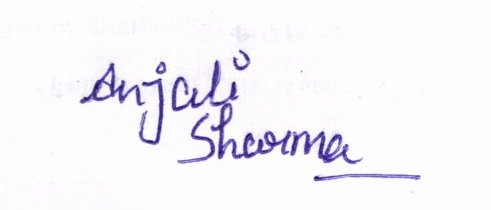 Anjali
Sharma